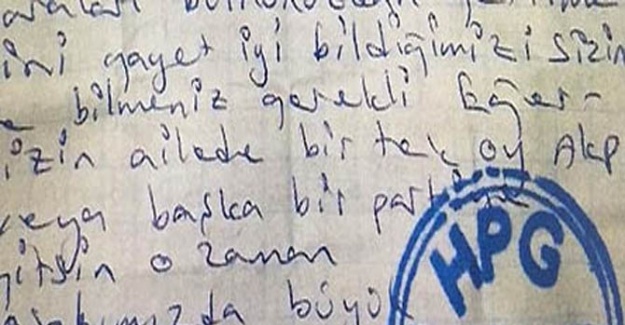 ini gayet iyi bildiğimizi sizin
bilmeniz gerekli Eğer-
izin ailede bir tek oy AKP
veya başka bir partiye
gitsin o zaman
büyük
HPG